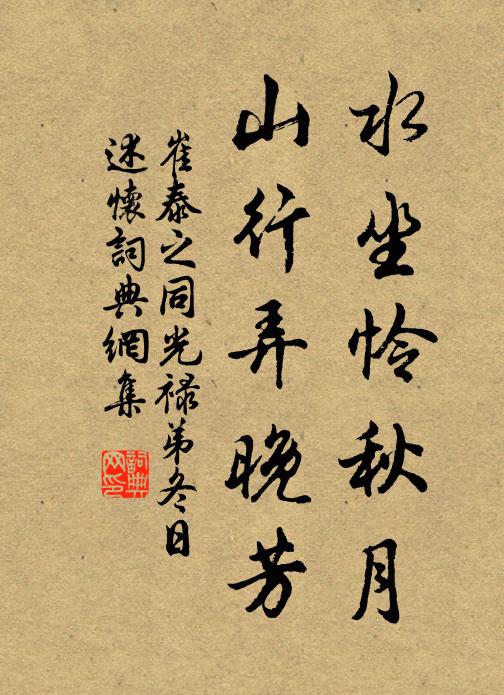 水坐怜秋月
山行弄晚芳
崔泰之同光禄弟冬日
述懷詞典網集
詞典
网印